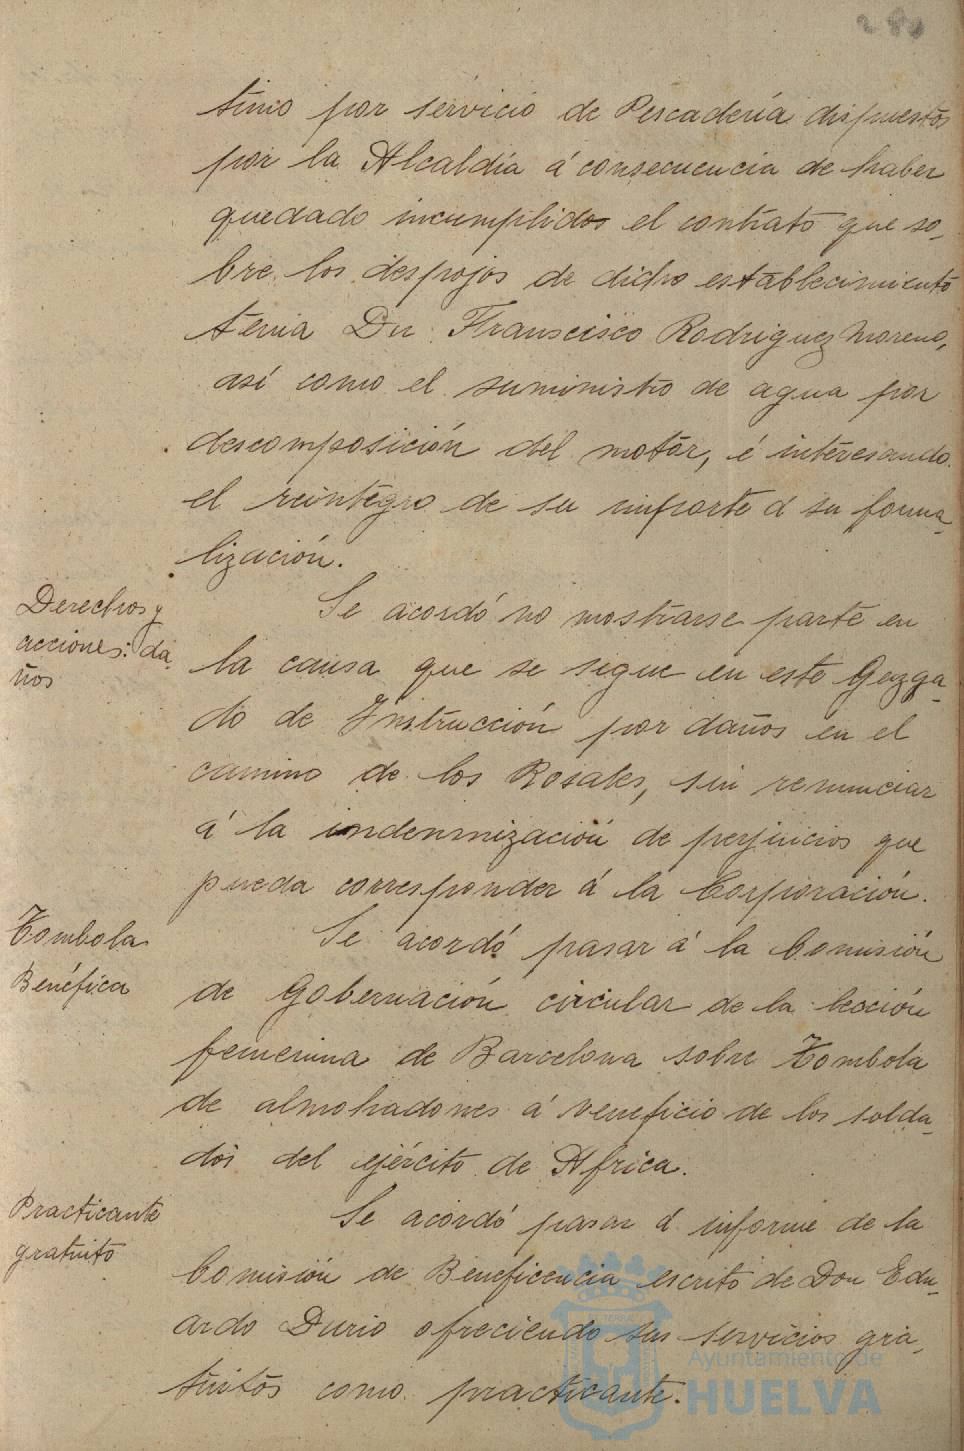 280
timo por servicio de Pescadería dispuestos
por la Alcaldía á consecucencia de haber
quedado incumplidos el contrato que so-
bre los despojos de dicho establecimiento
tenia Dn. Franscisco Rodriguez Moreno,
así como el suministro de agua por
descomposición del motor, é interesando
el reintegro de su importe á su forma-
lización.
Derechos y
acciones: da-
ños
Se acordó no mostrarse parte en
la causa que se sigue en este Guzga-
do de Instrucción por daños en el
camino de los Rosales, sin renunciar
á la indemnización de perjuicios que
pueda corresponder á la Corporación.
Tombola
Benéfica
Se acordó pasar á la Comisión
de Gobernación circular de la Sección
femenina de Barcelona sobre Tombola
de almohadones á veneficio de los solda-
dos del ejército de Africa.
Practicante
gratuito
Se acordó pasar á informe de la
Comisión de Beneficencia escrito de Don Edu-
ardo Durio ofreciendo sus servicios gra-
tuitos como practicante.
Ayuntamiento de
HUELVA